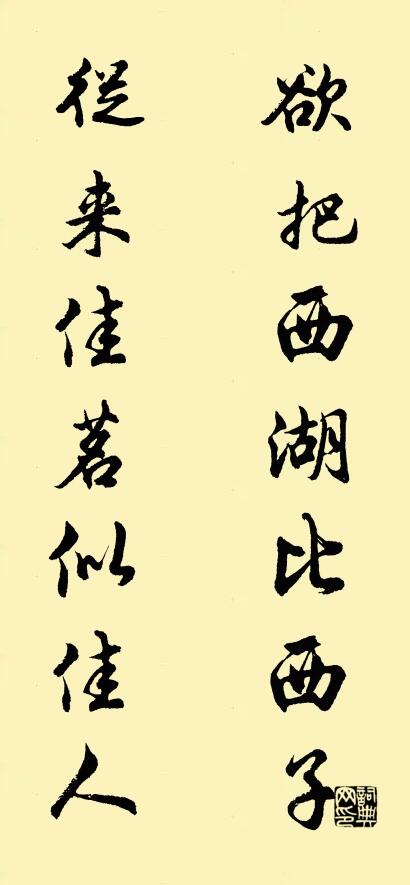 欲把西湖比西子
從来佳茗似佳人
詞典网印